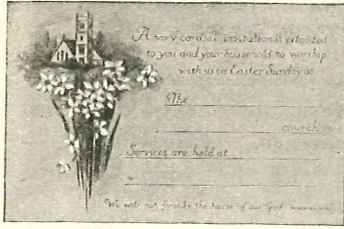 A very cordial invitation is extended
to you and your household to worship
with us on Easter Sunday at
The
church
Services are held at
We will not forsake the house of our God